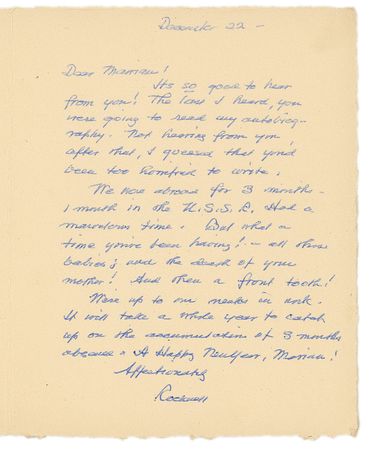 December 22 -
Dear Marian!
Its so good to hear
from you! The last I heard, you
were going to read my autobiog-
raphy. Not hearing from you
after that, I guessed that you'd
been too horrified to write.
We were abroad for 3 months -
1 month in the U.S.S.R. Had a
marvelous time. But what a
time you've been having! - all those
babies, and the death of your
mother! And then a front tooth!
Were up to our necks in work.
It will take a whole year to catch
up on the accumulation of 3 months
absence. A Happy New Year, Marian!
Affectionately
Rockwell